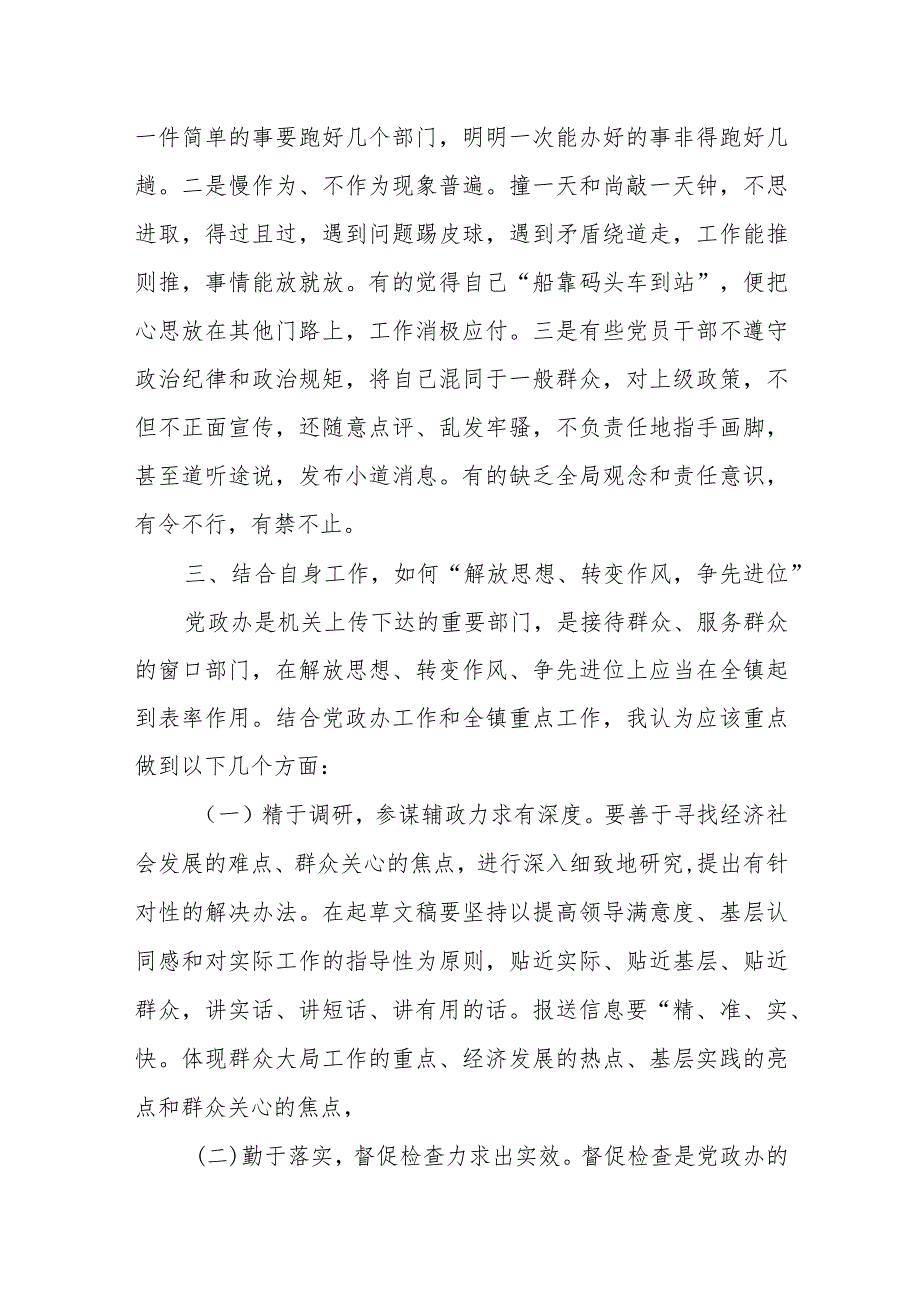 一件简单的事要跑好几个部门，明明一次能办好的事非得跑好几
趟。二是慢作为、不作为现象普遍。撞一天和尚敲一天钟，不思
进取，得过且过，遇到问题踢皮球，遇到矛盾绕道走，工作能推
则推，事情能放就放。有的觉得自己“船靠码头车到站”，便把
心思放在其他门路上，工作消极应付。三是有些党员干部不遵守
政治纪律和政治规矩，将自己混同于一般群众，对上级政策，不
但不正面宣传，还随意点评、乱发牢骚，不负责任地指手画脚，
甚至道听途说，发布小道消息。有的缺乏全局观念和责任意识，
有令不行，有禁不止。
三、结合自身工作，如何“解放思想、转变作风，争先进位”
党政办是机关上传下达的重要部门，是接待群众、服务群众
的窗口部门，在解放思想、转变作风、争先进位上应当在全镇起
到表率作用。结合党政办工作和全镇重点工作，我认为应该重点
做到以下几个方面：
（一）精于调研，参谋辅政力求有深度。要善于寻找经济社
会发展的难点、群众关心的焦点，进行深入细致地研究,提出有针
对性的解决办法。在起草文稿要坚持以提高领导满意度、基层认
同感和对实际工作的指导性为原则，贴近实际、贴近基层、贴近
群众，讲实话、讲短话、讲有用的话。报送信息要“精、准、实、
快。体现群众大局工作的重点、经济发展的热点、基层实践的亮
点和群众关心的焦点，
(二)勤于落实，督促检查力求出实效。督促检查是党政办的